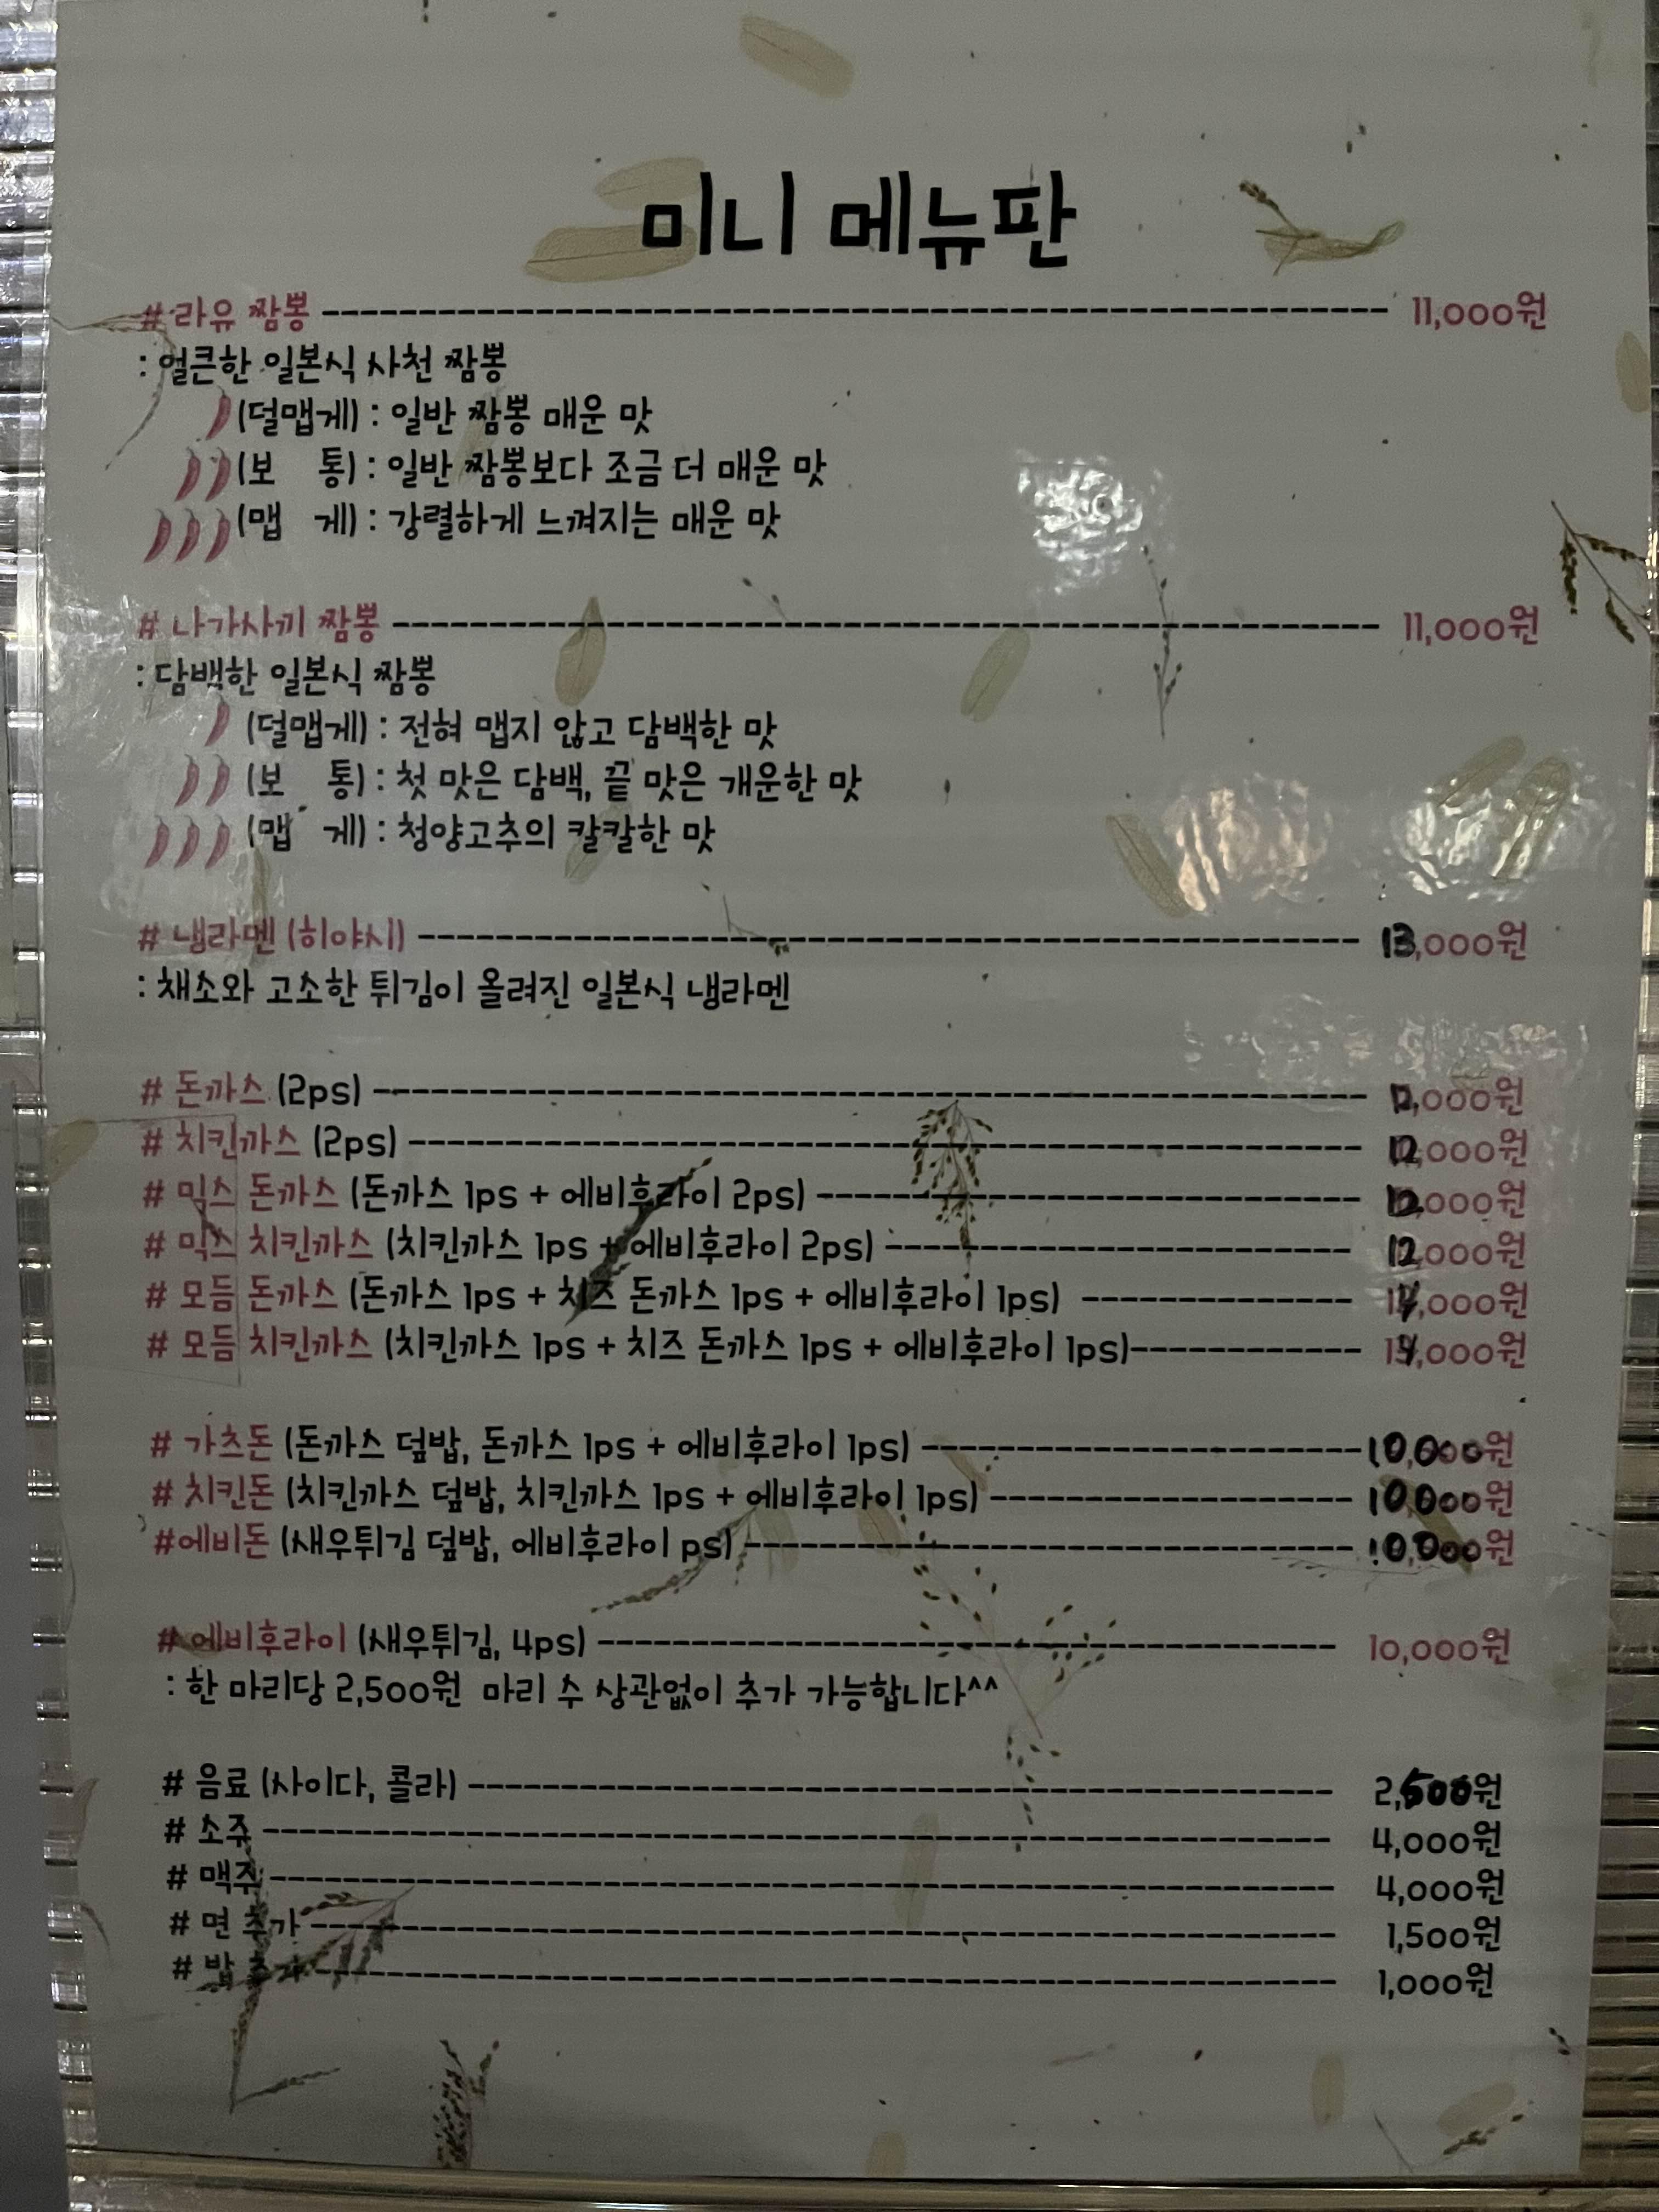 미니 메뉴판
# 라유 짬뽕 ---------- 11,000원
: 얼큰한 일본식 사천 짬뽕
(덜맵게) : 일반 짬뽕 매운 맛
(보 통) : 일반 짬뽕보다 조금 더 매운 맛
(맵 게) : 강렬하게 느껴지는 매운 맛
# 나가사끼 짬뽕 ---------- 11,000원
: 담백한 일본식 짬뽕
(덜맵게) : 전혀 맵지 않고 담백한 맛
(보 통) : 첫 맛은 담백, 끝 맛은 개운한 맛
(맵 게) : 청양고추의 칼칼한 맛
# 냉라멘 (히야시) ---------- 13,000원
: 채소와 고소한 튀김이 올려진 일본식 냉라멘
# 돈까스 (2ps) ---------- 12,000원
# 치킨까스 (2ps) ---------- 12,000원
# 믹스 돈까스 (돈까스 1ps + 에비후라이 2ps) ---------- 12,000원
# 믹스 치킨까스 (치킨까스 1ps + 에비후라이 2ps) ---------- 12,000원
# 모듬 돈까스 (돈까스 1ps + 치즈 돈까스 1ps + 에비후라이 1ps) ---------- 14,000원
# 모듬 치킨까스 (치킨까스 1ps + 치즈 돈까스 1ps + 에비후라이 1ps) ---------- 14,000원
# 가츠돈 (돈까스 덮밥, 돈까스 1ps + 에비후라이 1ps) ---------- 10,000원
# 치킨돈 (치킨까스 덮밥, 치킨까스 1ps + 에비후라이 1ps) ---------- 10,000원
#에비돈 (새우튀김 덮밥, 에비후라이 ps) ---------- 10,000원
# 에비후라이 (새우튀김, 4ps) ---------- 10,000원
: 한 마리당 2,500원 마리 수 상관없이 추가 가능합니다^^
# 음료 (사이다, 콜라) ---------- 2,500원
# 소주 ---------- 4,000원
# 맥주 ---------- 4,000원
# 면 추가 ---------- 1,500원
# 밥 추가 ---------- 1,000원